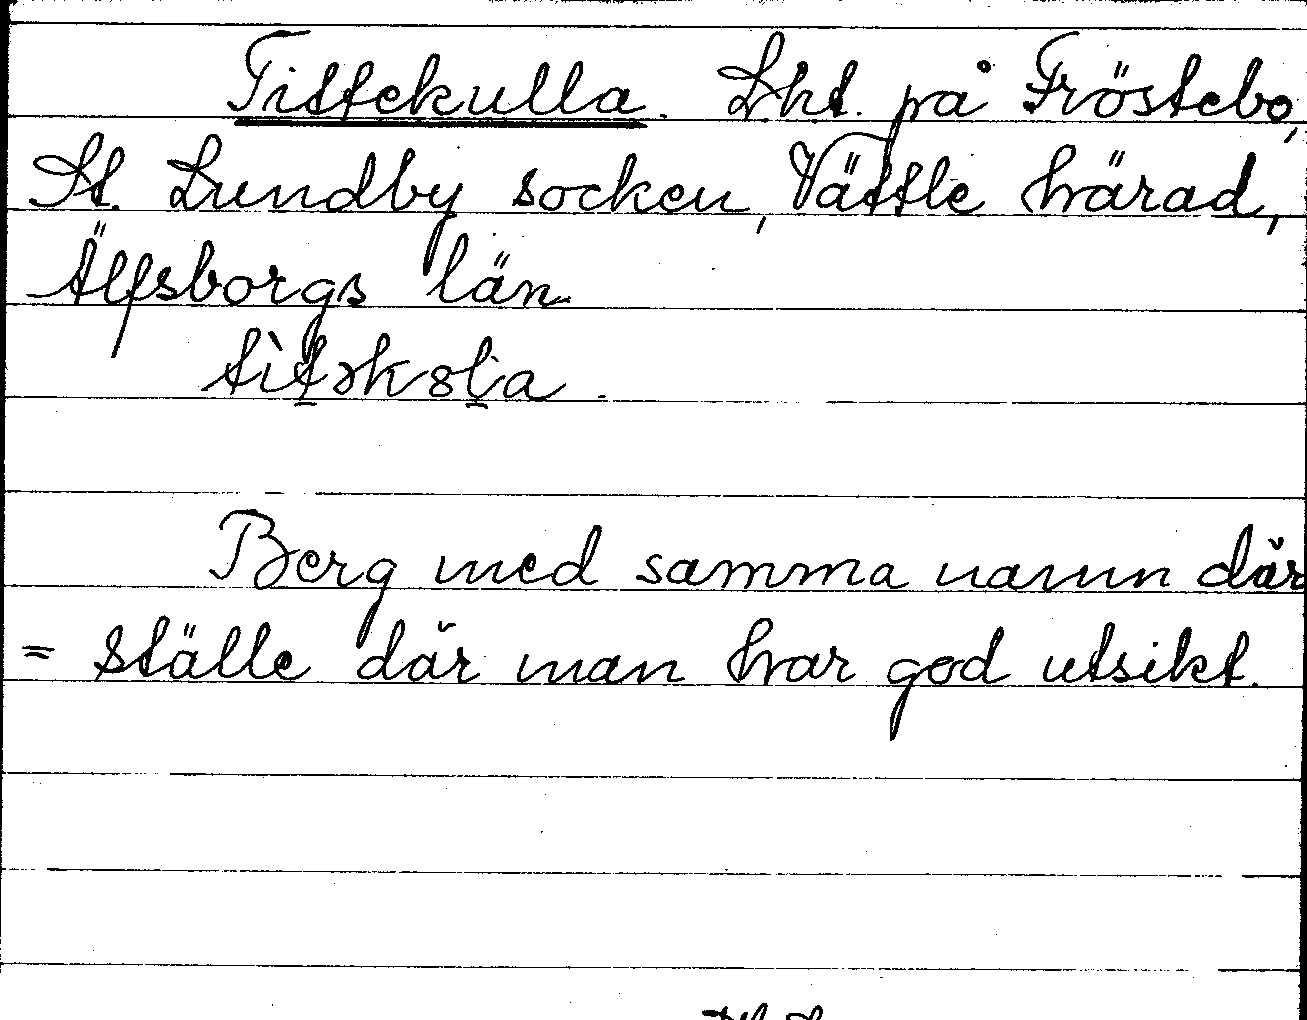 Tittekulla. Lht. på Fröstebo,
St. Lundby socken, Vättle härad,
Älfsborgs län.
Berg med samma namn där
= ställe där man har god utsikt.